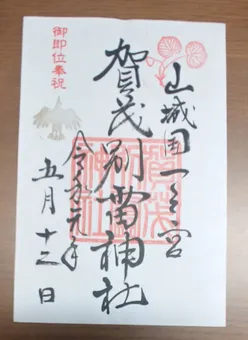 山城国一之宮
賀茂別雷神社
令和元年
五月十二日
御即位奉祝